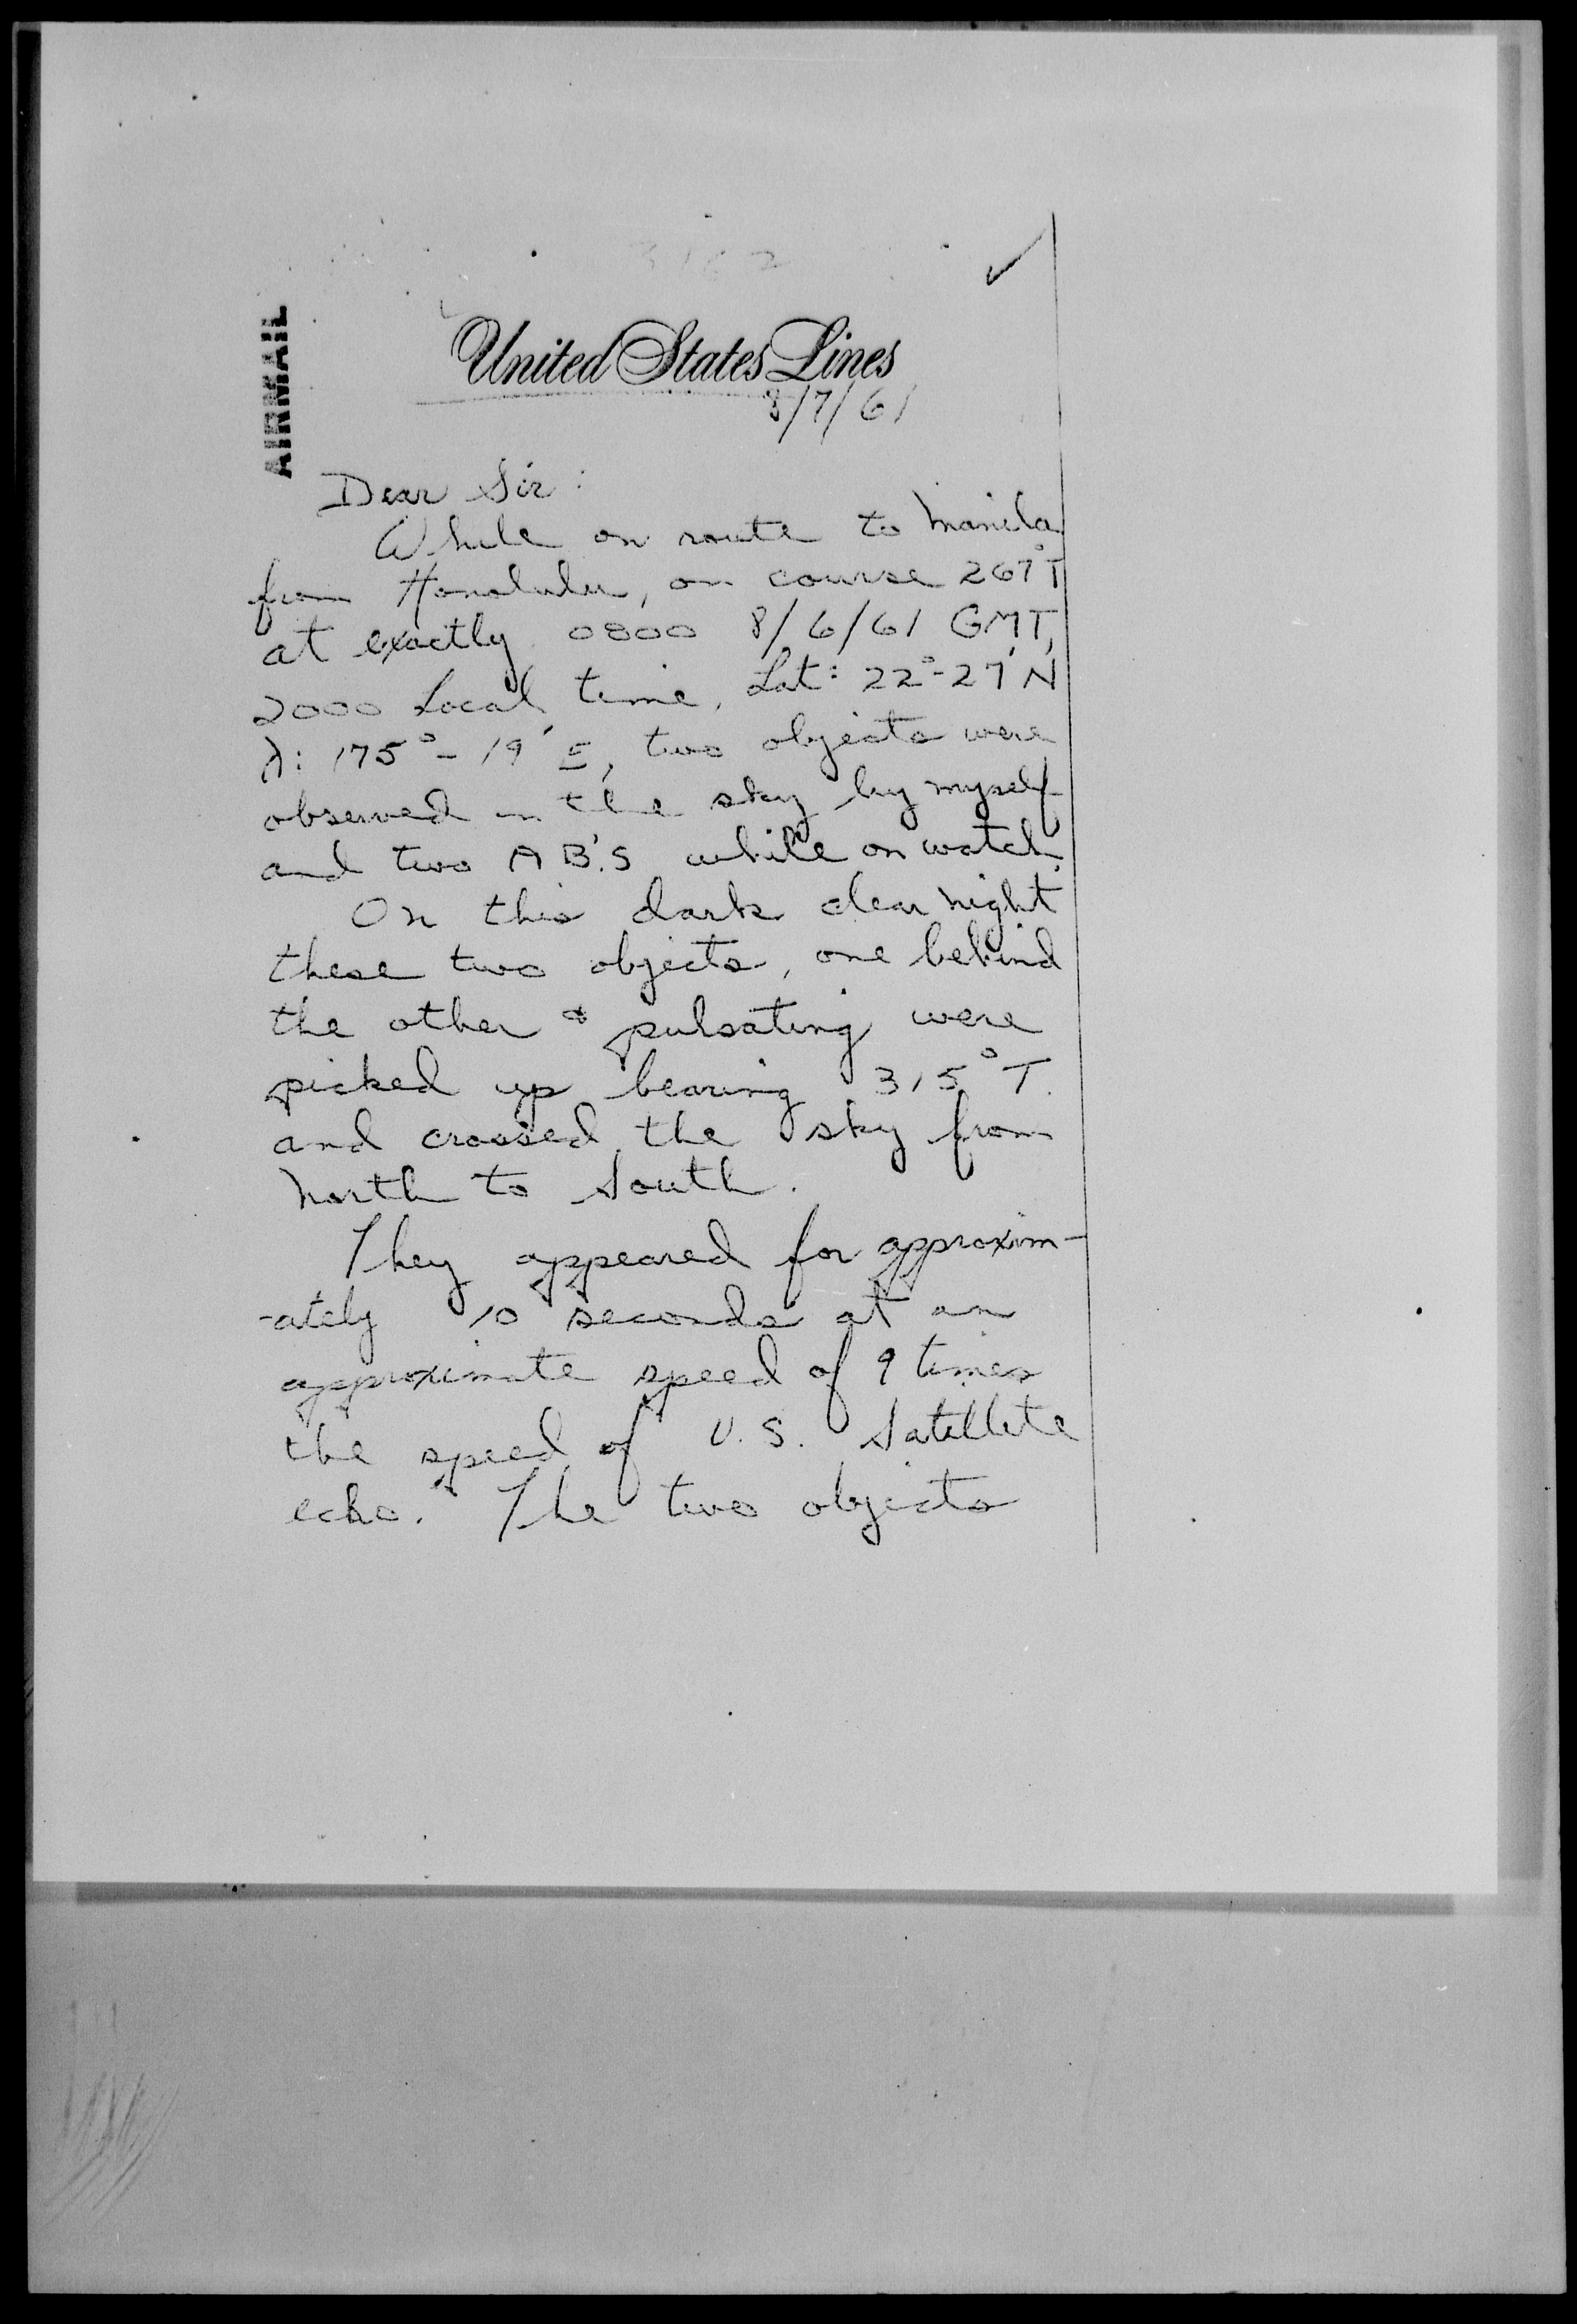 AIRMAIL
United States Lines
8/7/61
Dear Sir:
While on route to Manila
from Honolulu, on course 267°T
at exactly 0800 8/6/61 GMT,
2000 Local time, Lat: 22°-27'N
λ: 175°-19'E, two objects were
observed in the sky by myself
and two AB.'S while on watch.
On this dark clear night
these two objects, one behind
the other & pulsating were
picked up bearing 315°T.
and crossed the sky from
North to South.
They appeared for approxim-
-ately 10 seconds at an
approximate speed of 9 times
the speed of U.S. Satellite
echo. The two objects